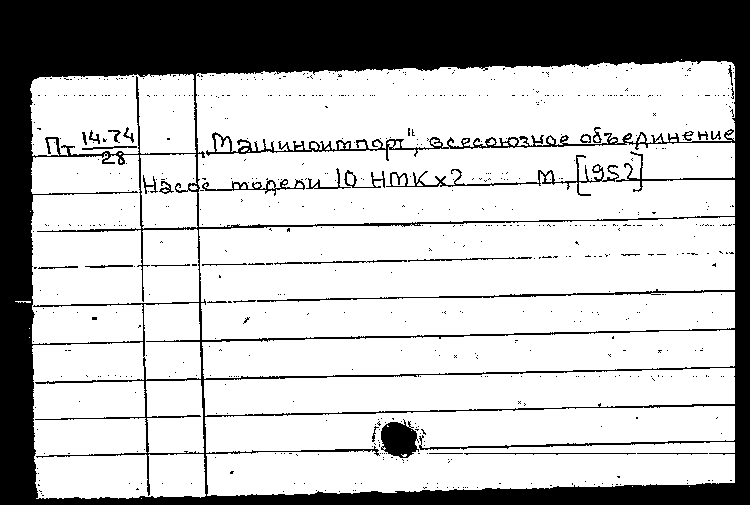 Пт 14.74/28
„Машиноимпорт", всесоюзное объединение
Насос модели 10 НМК х2 М., [1952]